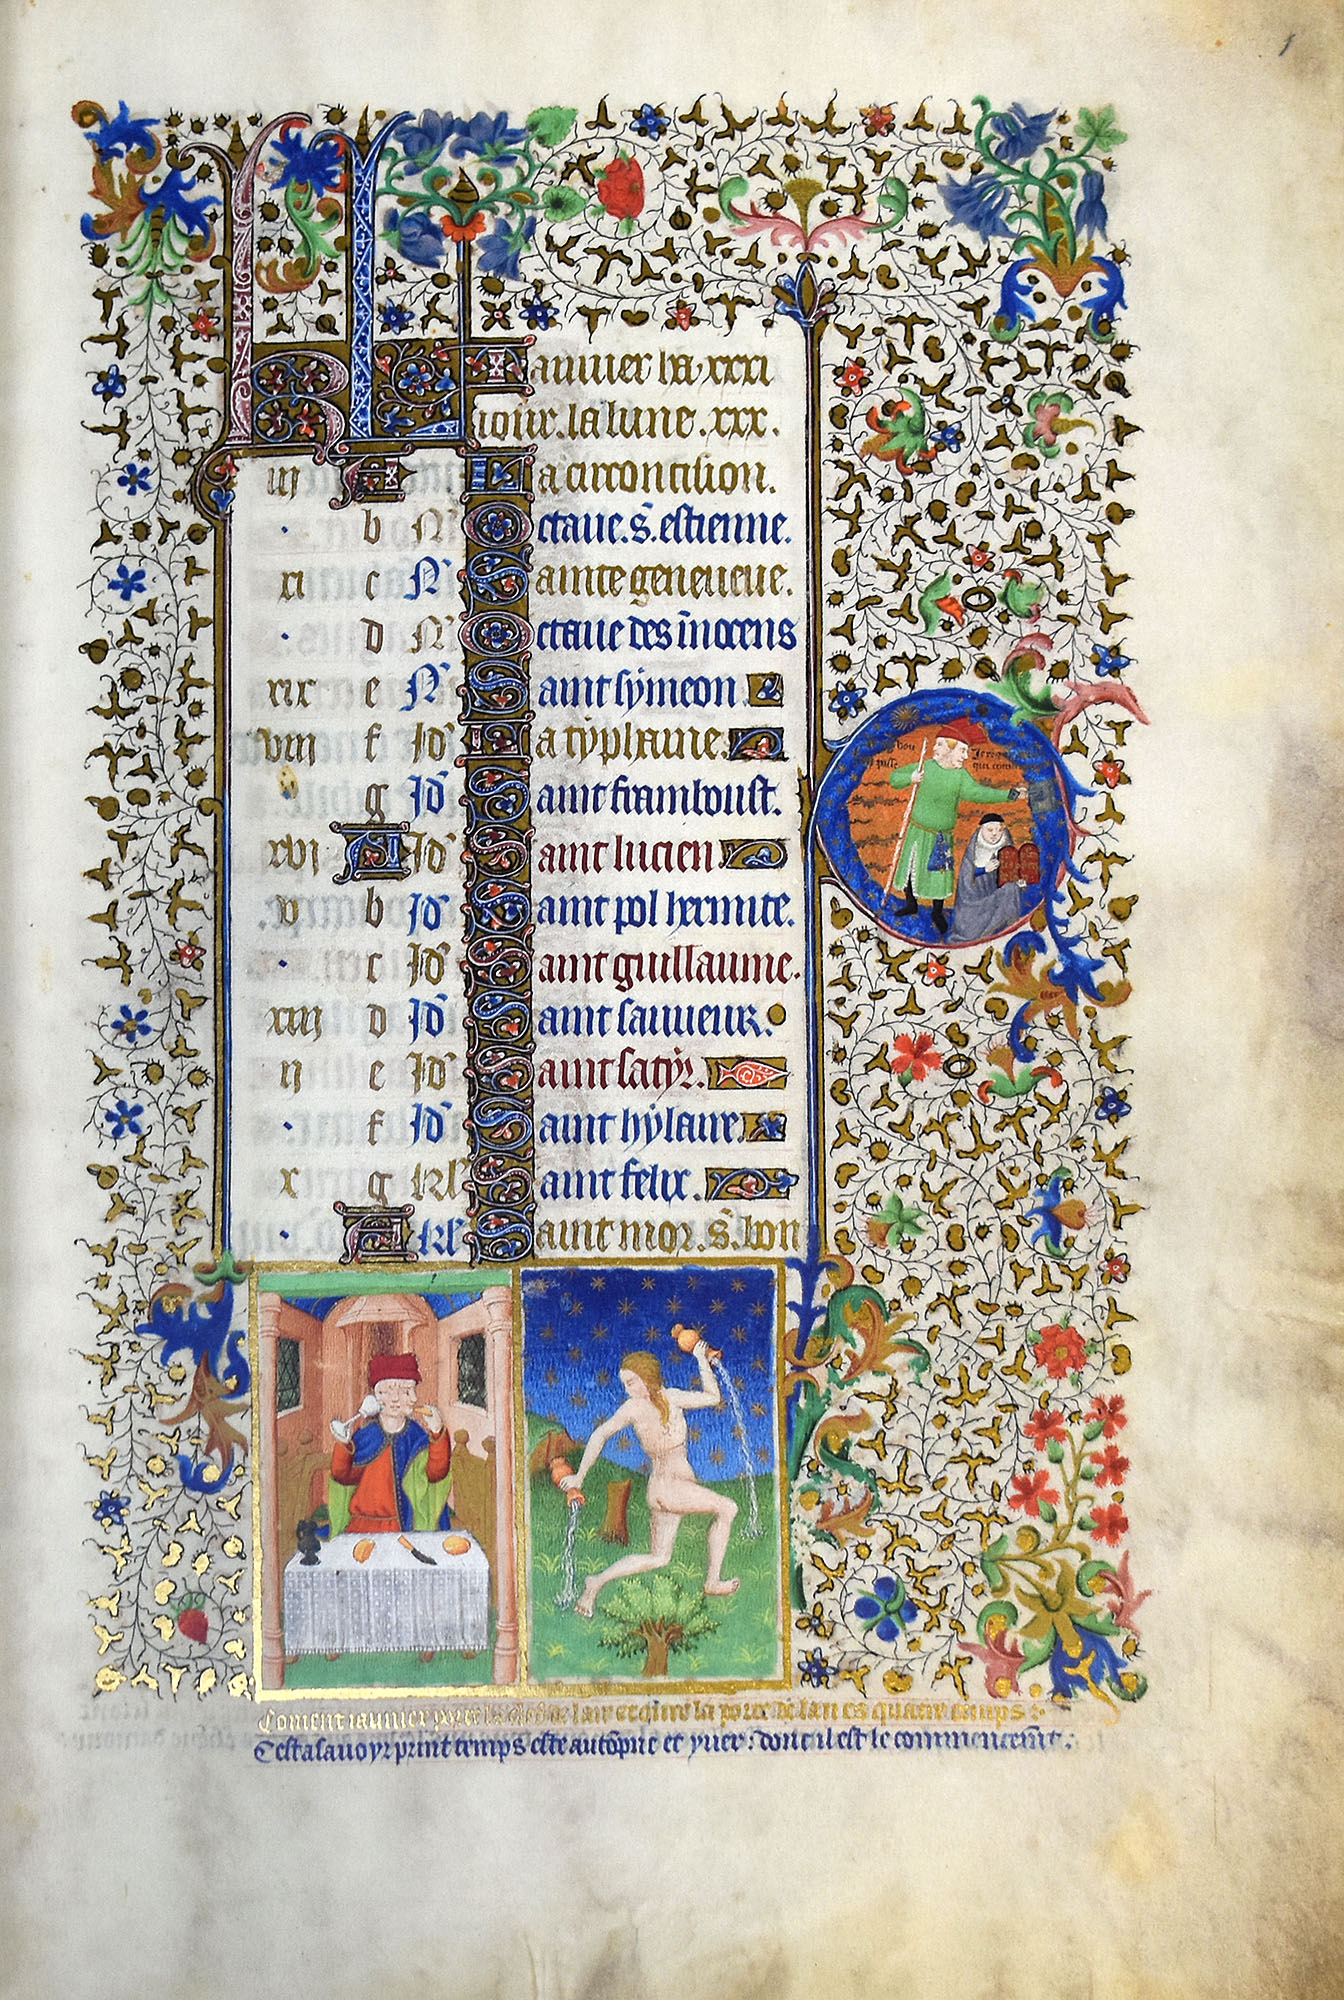 KL Januier ha xxxi
iour. la lune. xxx.
iij A La circoncision.
b N Octaue. s. estienne.
xi c N Sainte geneueue.
d N Octaue des inocens
xix e N Saint symeon
viij f Id La typhaine.
g Id Saint franboust.
xvi A Id Saint lucien
v b Id Saint pol hermite.
c Id Saint guillaume.
xiij d Id Saint sauueur.
ij e Id Saint satyr.
f Id Saint hylaire
x g kl Saint felix.
A kl Saint mor. s. bon
Coment ianuier la porte de lan es quatre temps:
Cest asauoyr print temps este autopne et yuer: dont il est le commencemt: